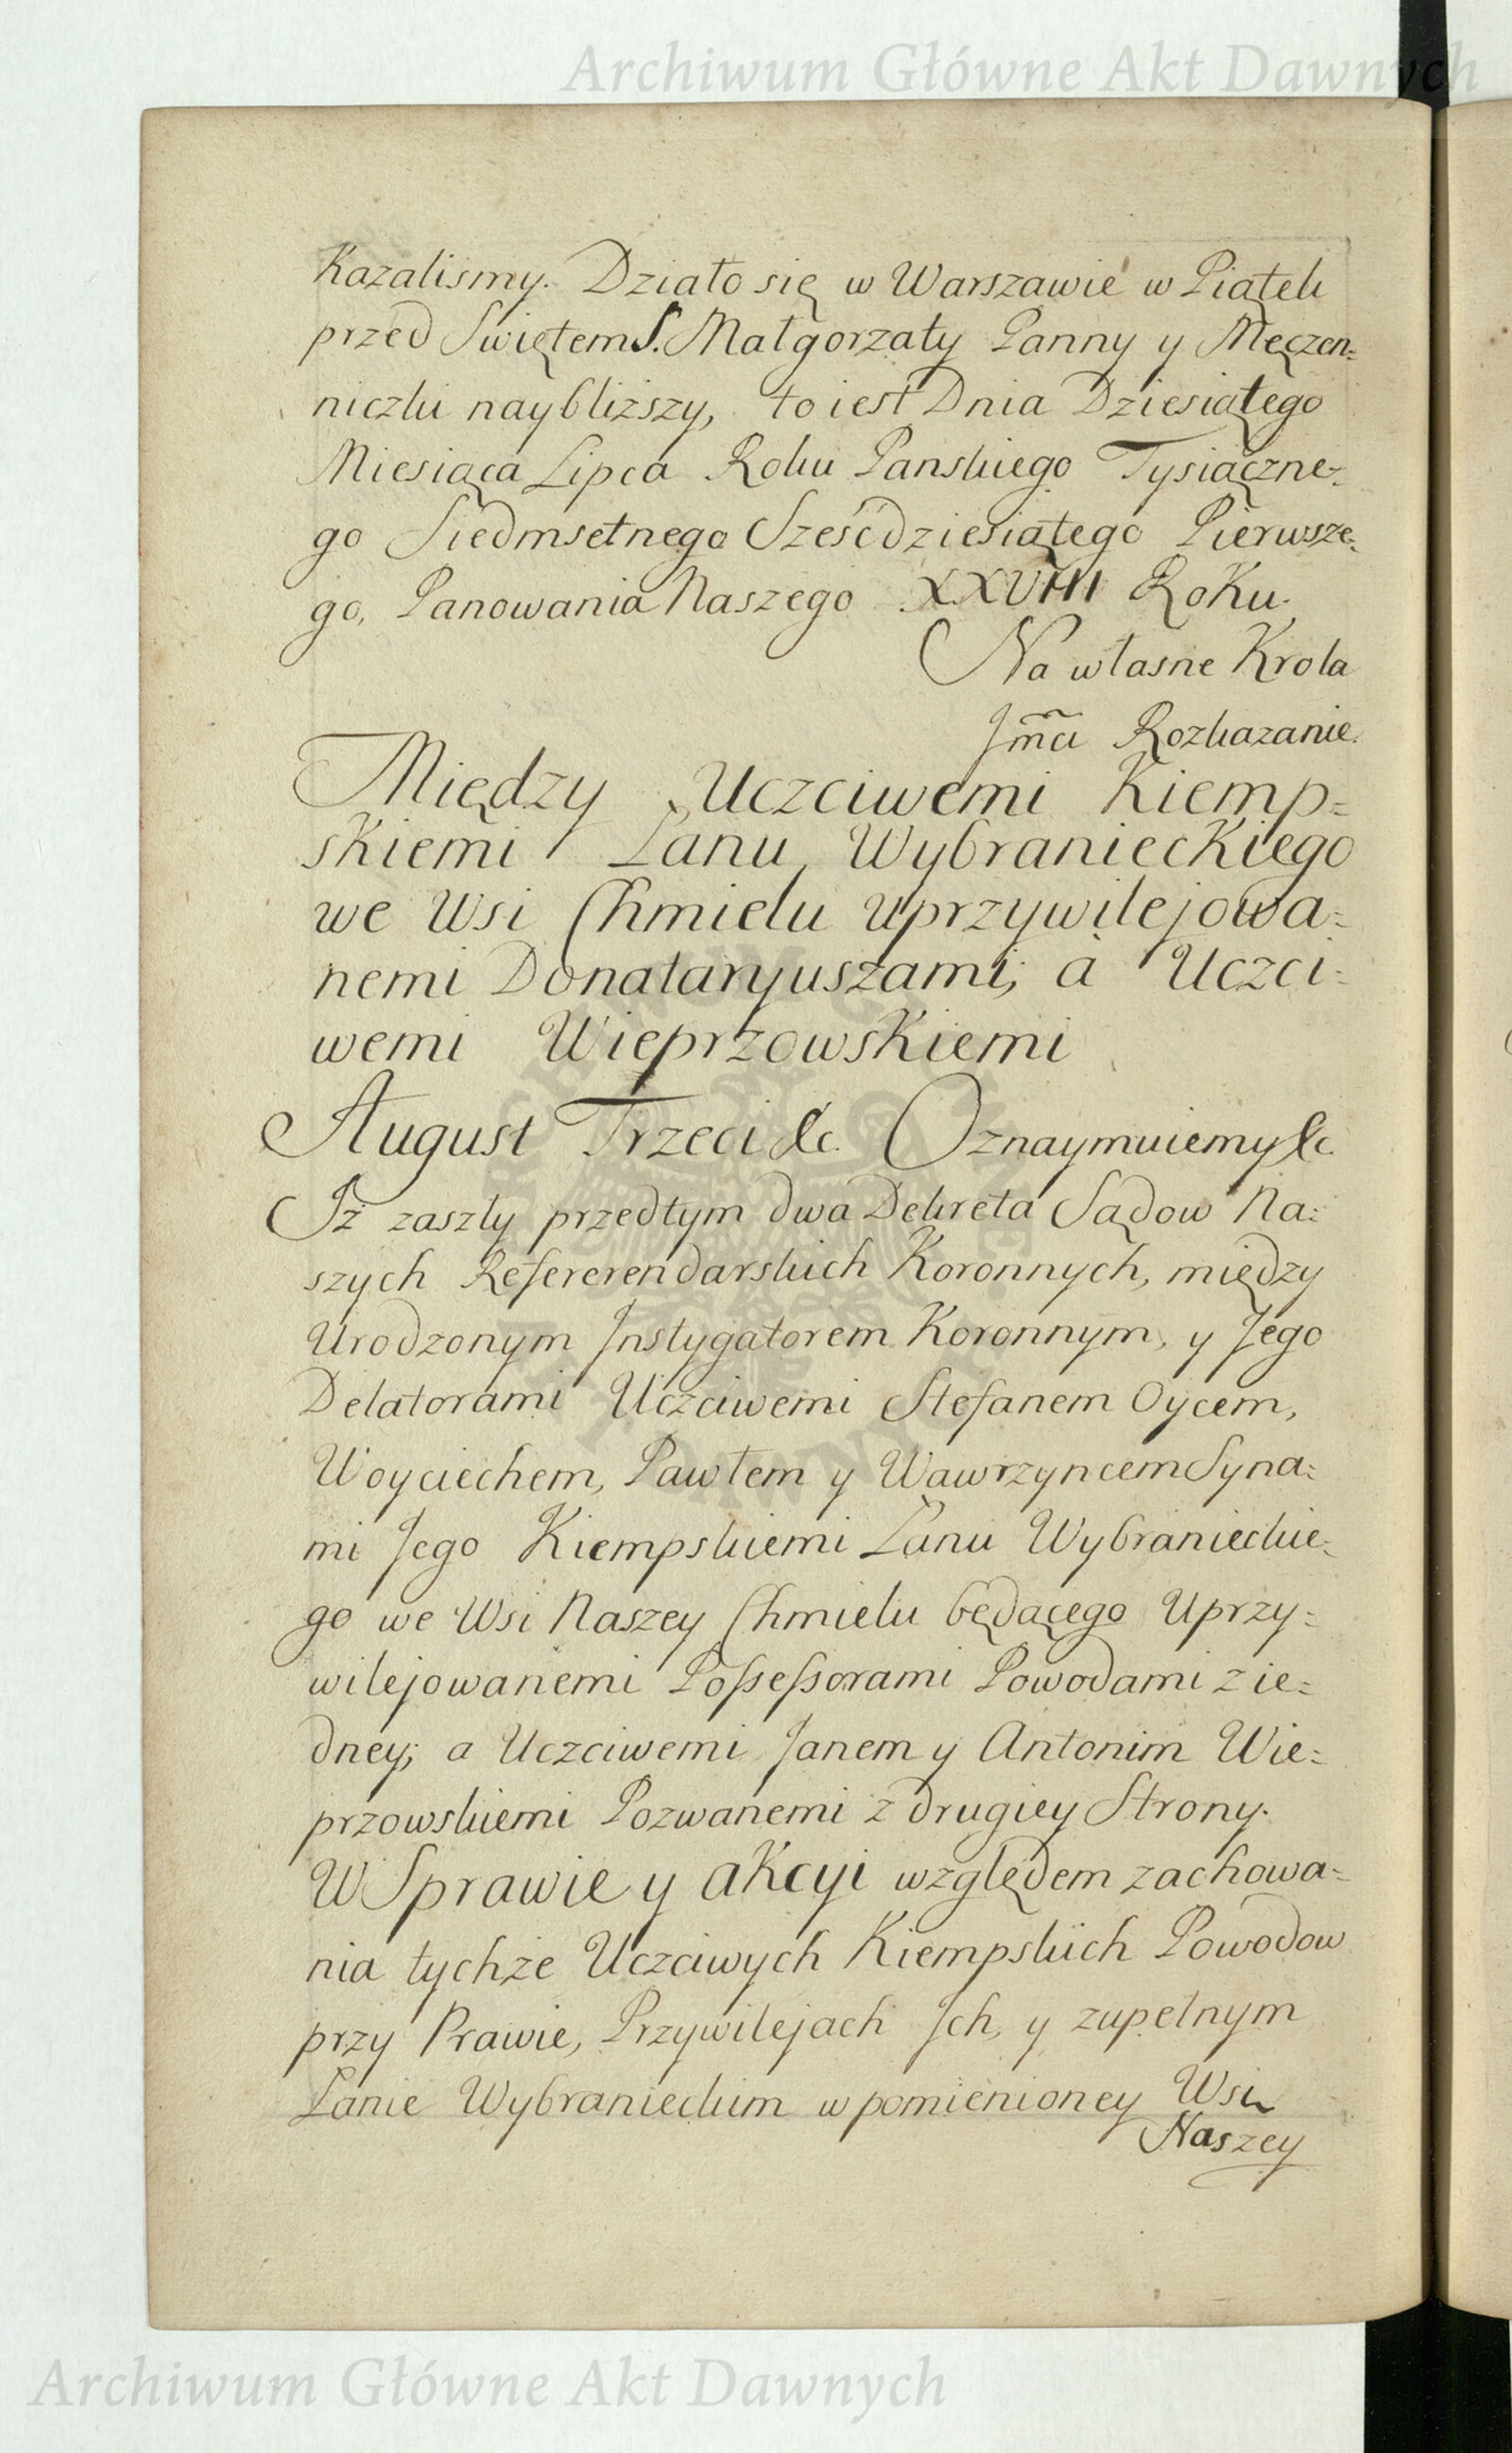 Archiwum Główne Akt Dawnych
Kazalismy. Działo się w Warszawie w Piątek
przed Swiętem S. Małgorzaty Panny y Męczen=
niczki naybliższy, to iest Dnia Dziesiątego
Miesiąca Lipca Roku Panskiego Tysiączne=
go Siedmsetnego Sześćdziesiątego Pierwsze=
go, Panowania Naszego XXVIII Roku.
Na własne Krola
Jmci Rozkazanie.
Między Uczciwemi Kiemp=
skiemi Łanu Wybranieckiego
we Wsi Chmielu uprzywilejowa=
nemi Donataryuszami; a Uczci=
wemi Wieprzowskiemi
August Trzeci &c. Oznaymuiemy &c.
Iż zaszły przedtym dwa Dekreta Sądow Na=
szych Refererendarskich Koronnych, między
Urodzonym Instygatorem Koronnym, y Jego
Delatorami Uczciwemi Stefanem Oycem,
Woyciechem, Pawłem y Wawrzyncem Syna=
mi Jego Kiempskiemi Łanu Wybranieckie=
go we Wsi Naszey Chmielu będącego Uprzy=
wilejowanemi Possessorami Powodami z ie=
dney; a Uczciwemi Janem y Antonim Wie=
przowskiemi Pozwanemi z drugiey Strony.
W Sprawie y akcyi względem zachowa=
nia tychże Uczciwych Kiempskich Powodow
przy Prawie, Przywilejach Jch, y zupełnym
Łanie Wybranieckim w pomienioney Wsi
Naszey
Archiwum Główne Akt Dawnych